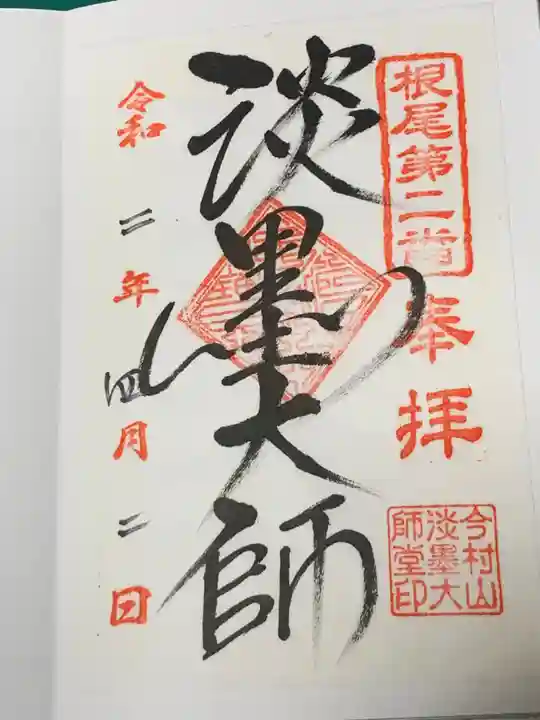 根尾第二番
奉拝
今村山
淡墨大
師堂印
淡墨大師
令和二年四月二日